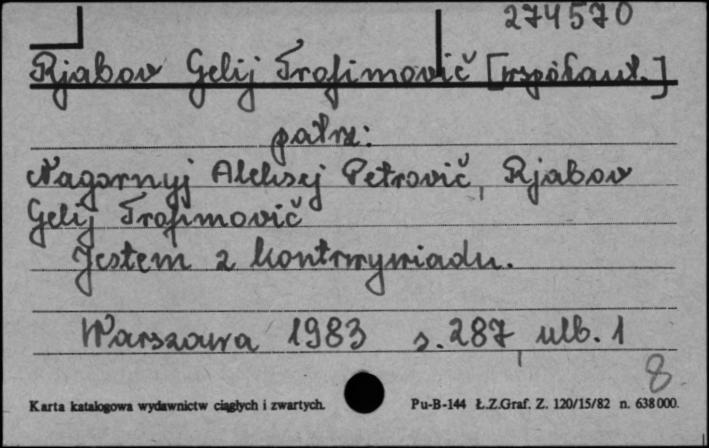 274570
Rjabov Gelij Trofimovič [współaut.]
patrz:
Nagornyj Aleksej Petrovič, Rjabov
Gelij Trofimovič
Jestem z kontrwywiadu.
Warszawa 1983 s. 287, ulb. 1
8
Karta katalogowa wydawnictw ciągłych i zwartych. Pu-B-144 Ł.Z.Graf. Z. 120/15/82 n. 638000.